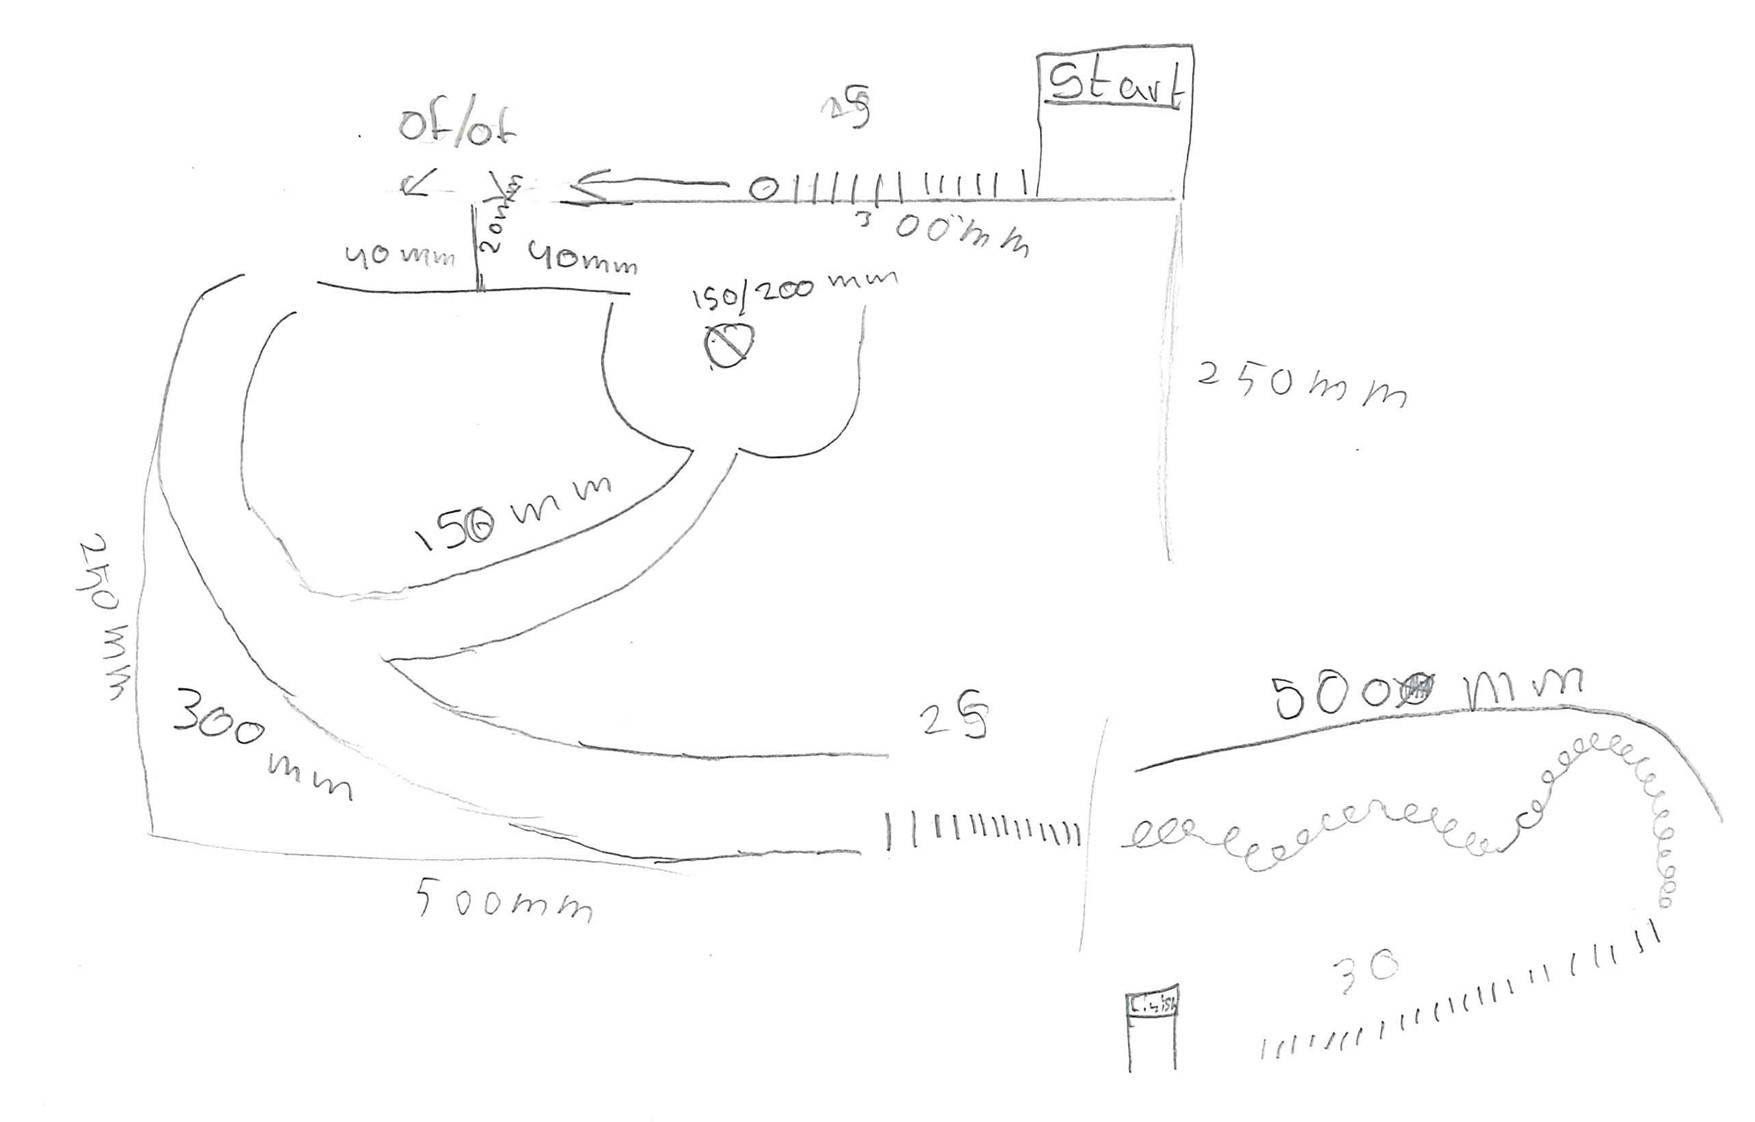 Start
of/of
25
20mm
300mm
40mm
40mm
150/200 mm
250mm
150 mm
250mm
300mm
500 mm
25
500mm
30
finish